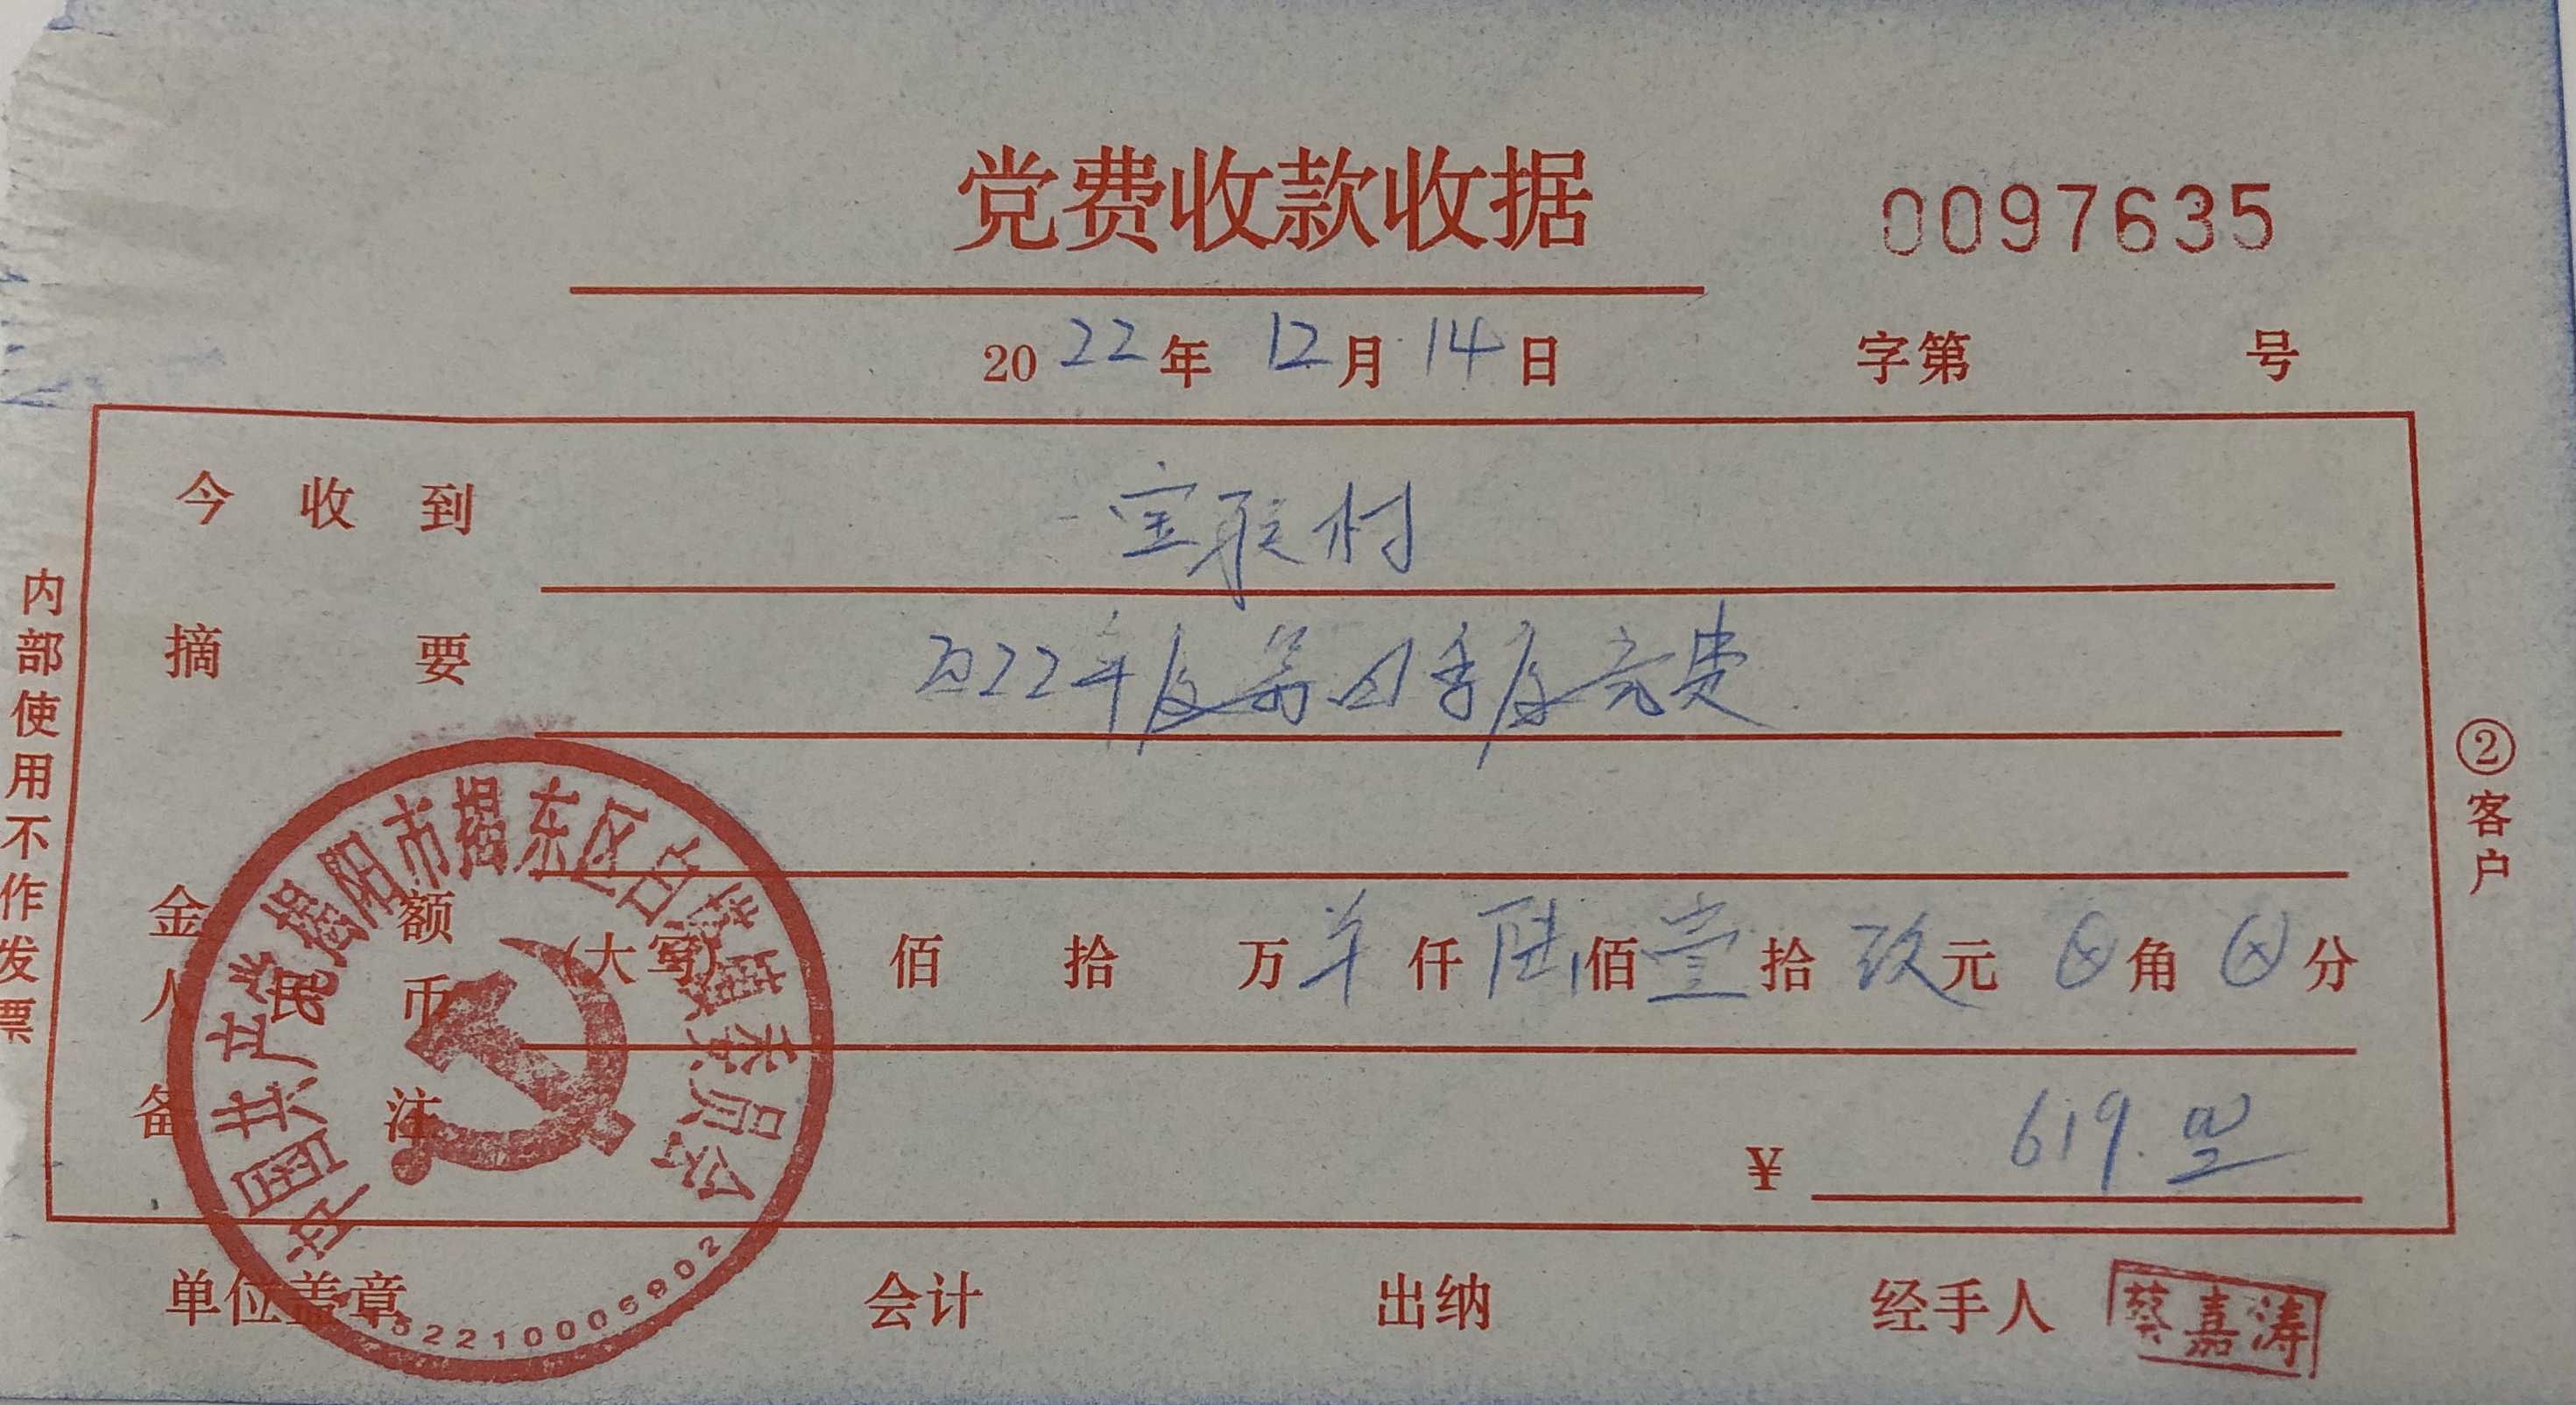 党费收款收据
0097635
2022年12月14日
字第 号
今收到 宝联村
摘要 2022年度第四季度党费
金额
人民币
(大写) 佰 拾 万 羊 仟 陆 佰 壹 拾 玖 元 ⊗ 角 ⊗ 分
备注
¥ 619.00
单位盖章 会计 出纳 经手人 蔡嘉涛
内部使用不作发票
②客户
中国共产党揭阳市揭东区
镇委员会
5221000